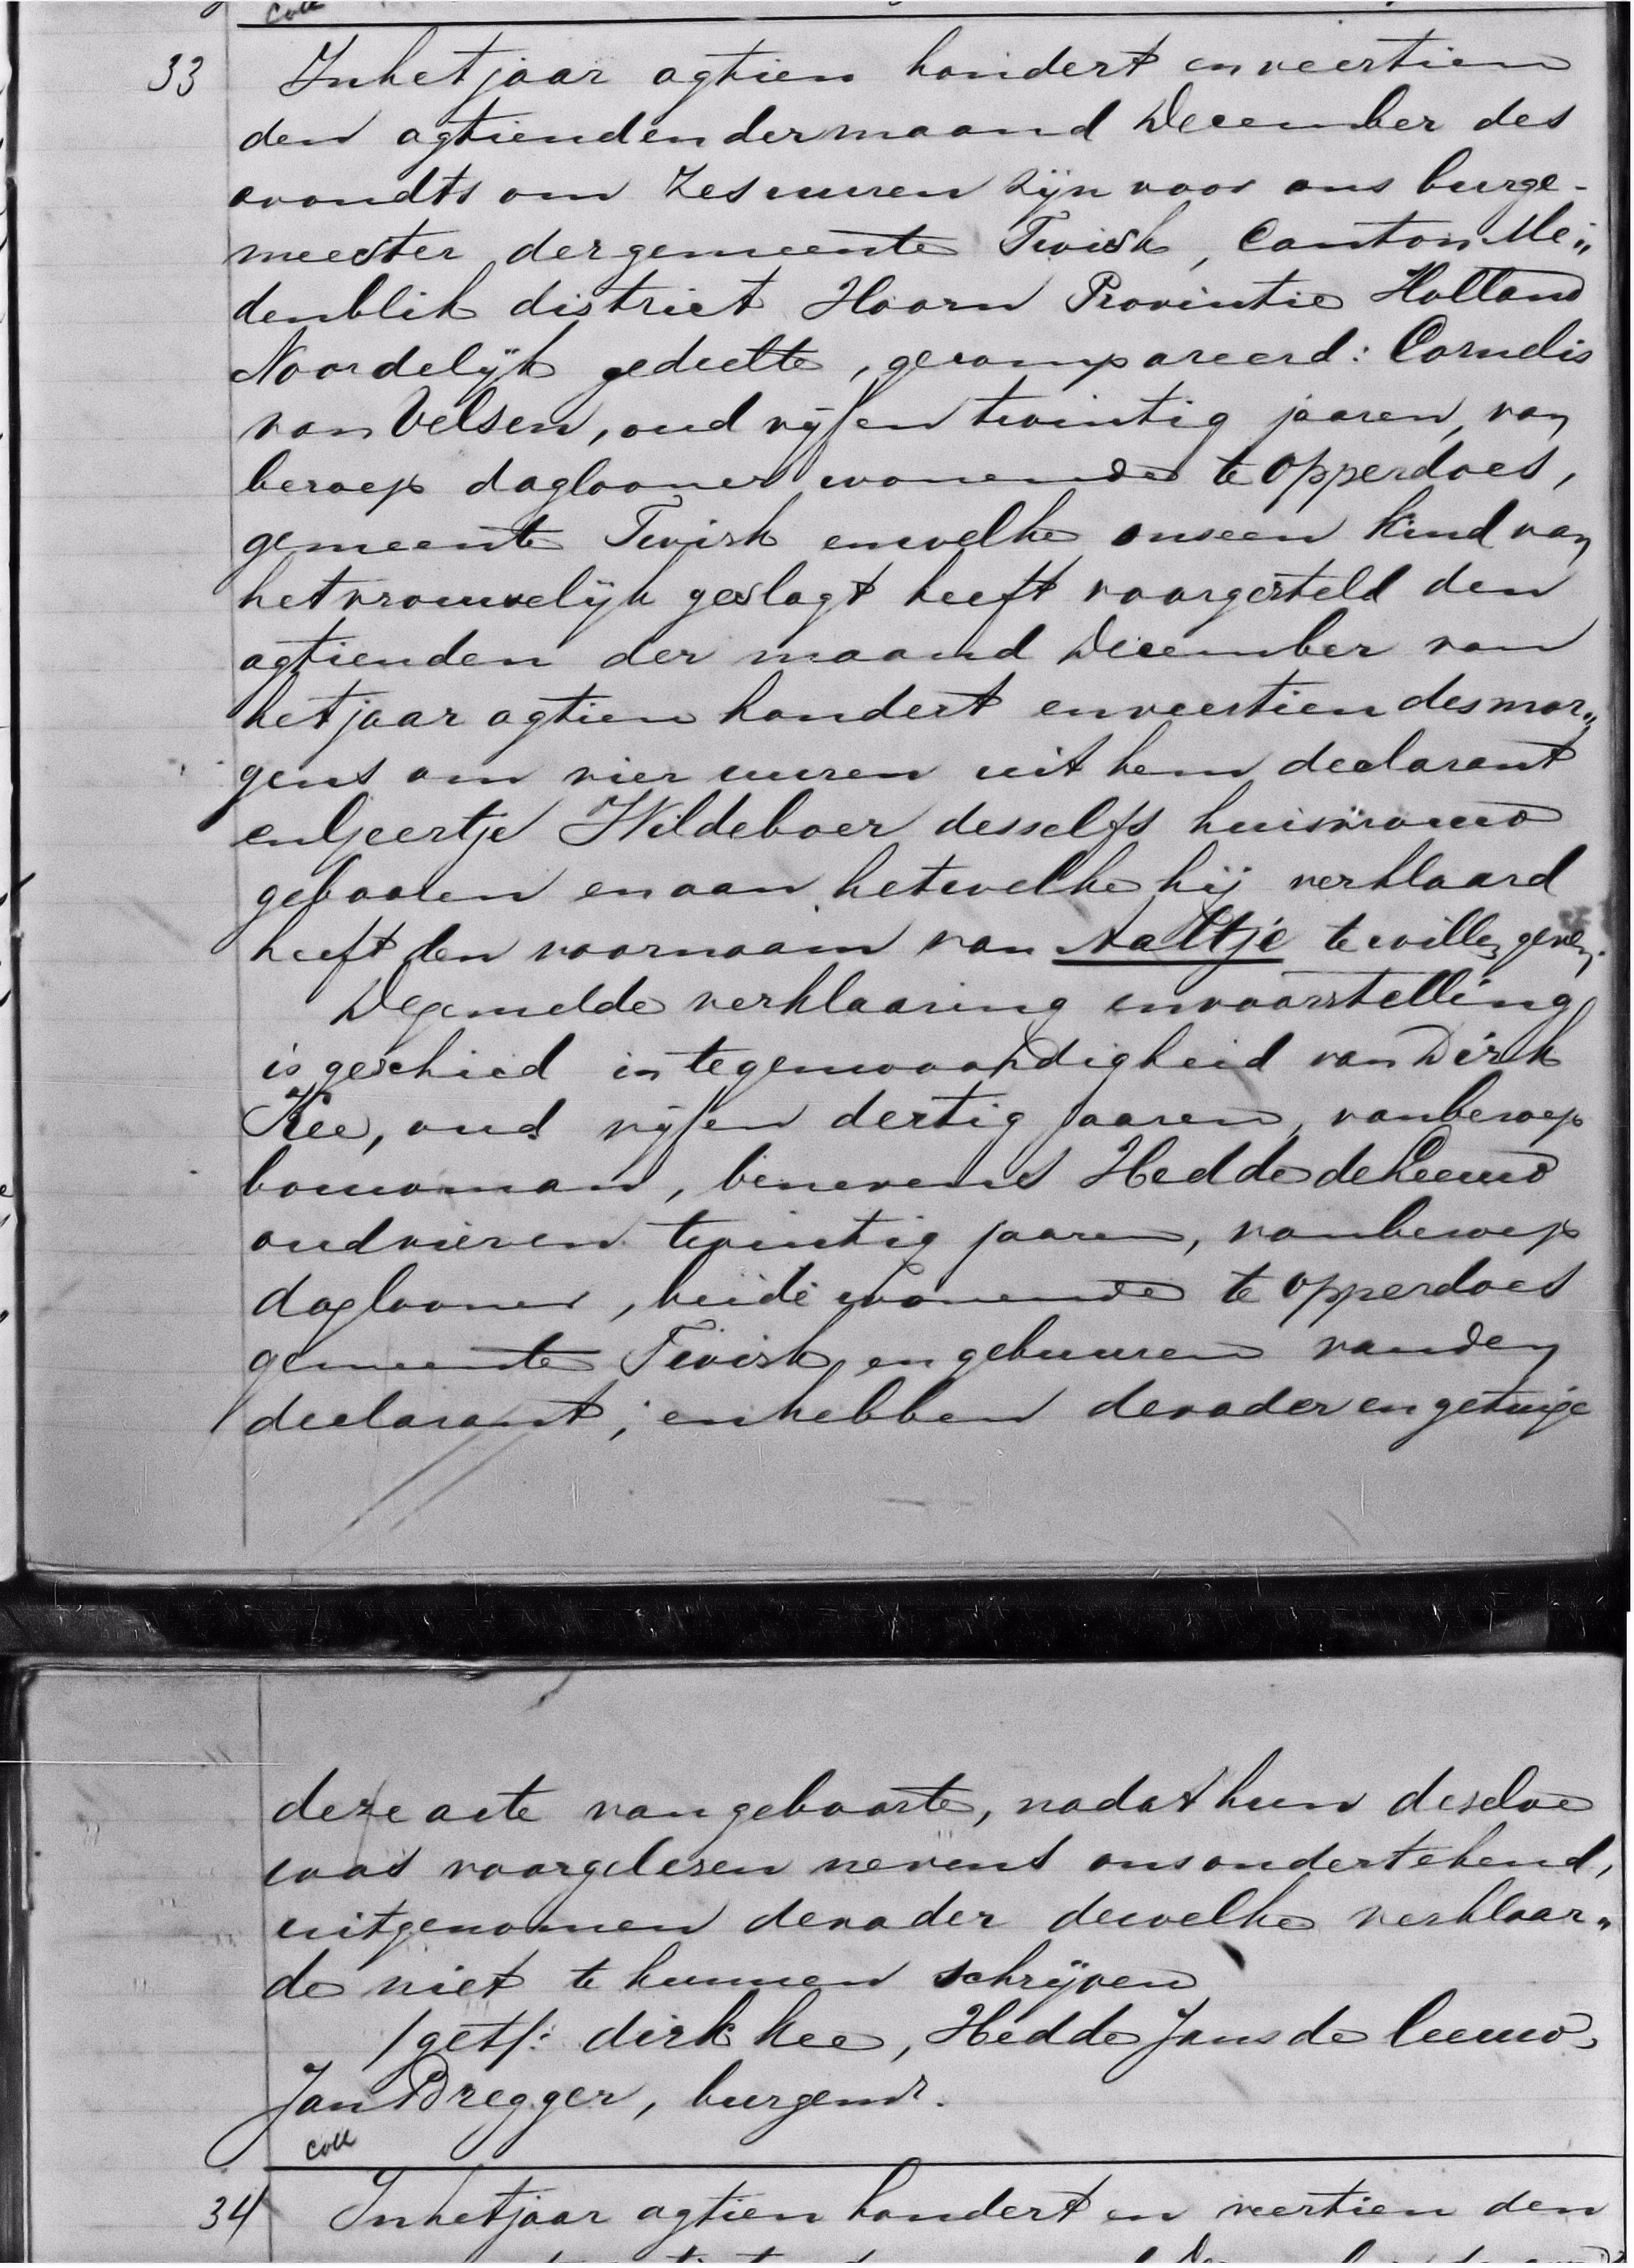 coll
33 In het jaar agtien hondert en veertien
den agtienden der maand December des
avondts om zes uuren zijn voor ons burge-
meester der gemeente Twisk, Canton Me„
denblik district Hoorn Provintie Holland
Noordelijk gedeelte, gecompareerd: Cornelis
van Velsen, oud vijf en twintig jaaren, van
beroep daglooner wonende te Opperdoes,
gemeente Twisk en welke ons een kind van
het vrouwelijk geslagt heeft voorgesteld den
agtienden der maand December van
het jaar agtien hondert en veertien des mor„
gens om vier uuren uit hem declarant
en Geertje Wildeboer desselfs huisvrouw
gebooren en aan hetwelke hij verklaard
heeft den voornaam van Aaltje te willen geven.
De gemelde verklaaring en voorstelling
is geschied in tegenwoordigheid van Dirk
Kee, oud vijf en dertig jaaren, van beroep
bouwman, benevens Hedde de Leeuw
oud vier en twintig jaaren, van beroep
daglooner, beide wonende te Opperdoes
gemeente Twisk en gebuuren van den
declarant; en hebben de vader en getuige
deze acte van geboorte, nadat hun deselve
was voorgelesen nevens ons ondertekend,
uitgenomen de vader dewelke verklaar„
de niet te kunnen schrijven
/get/: dirk kee, Hedde Jans de leeuw,
Jan Bregger, burgemr.
coll
34 In het jaar agtien hondert en veertien den